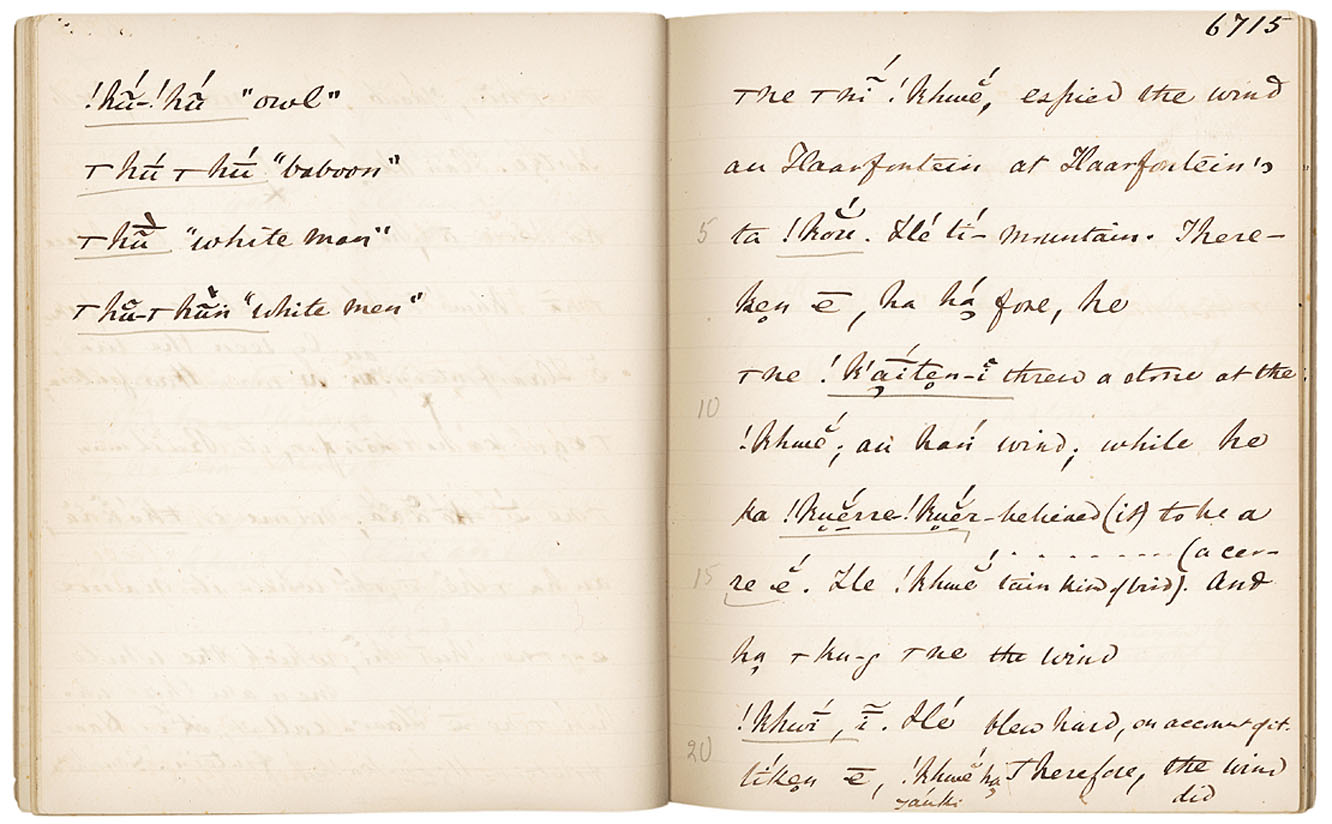 !hū́-!hū́ "owl"
⊤hū́⊤hū́ "baboon"
⊤hū̀ "white man"
⊤hū-⊤hūn "white men"
6715
⊤ne ⊤nī́ !khwĕ́, espied the wind
au Haarfontein at Haarfontein's
5 ta !kŏú. Hé tí- mountain. There-
ken ē, ha há̤ fore, he
⊤ne !k'aíten-ĭ threw a stone at the
10
!khwĕ́; au hań wind; while he
ka !kuĕ́rre-!kuĕ́r- believed (it) to be a
(a cer-
15 re ĕ́. He !khwĕ́ tain kind of bird). And
ha ⊤ku-g ⊤ne the wind
!khwī́, ī̃. Hé blew hard, on account of it.
20 tíken ē, !khwĕ́ ha Therefore, the wind
táuki did